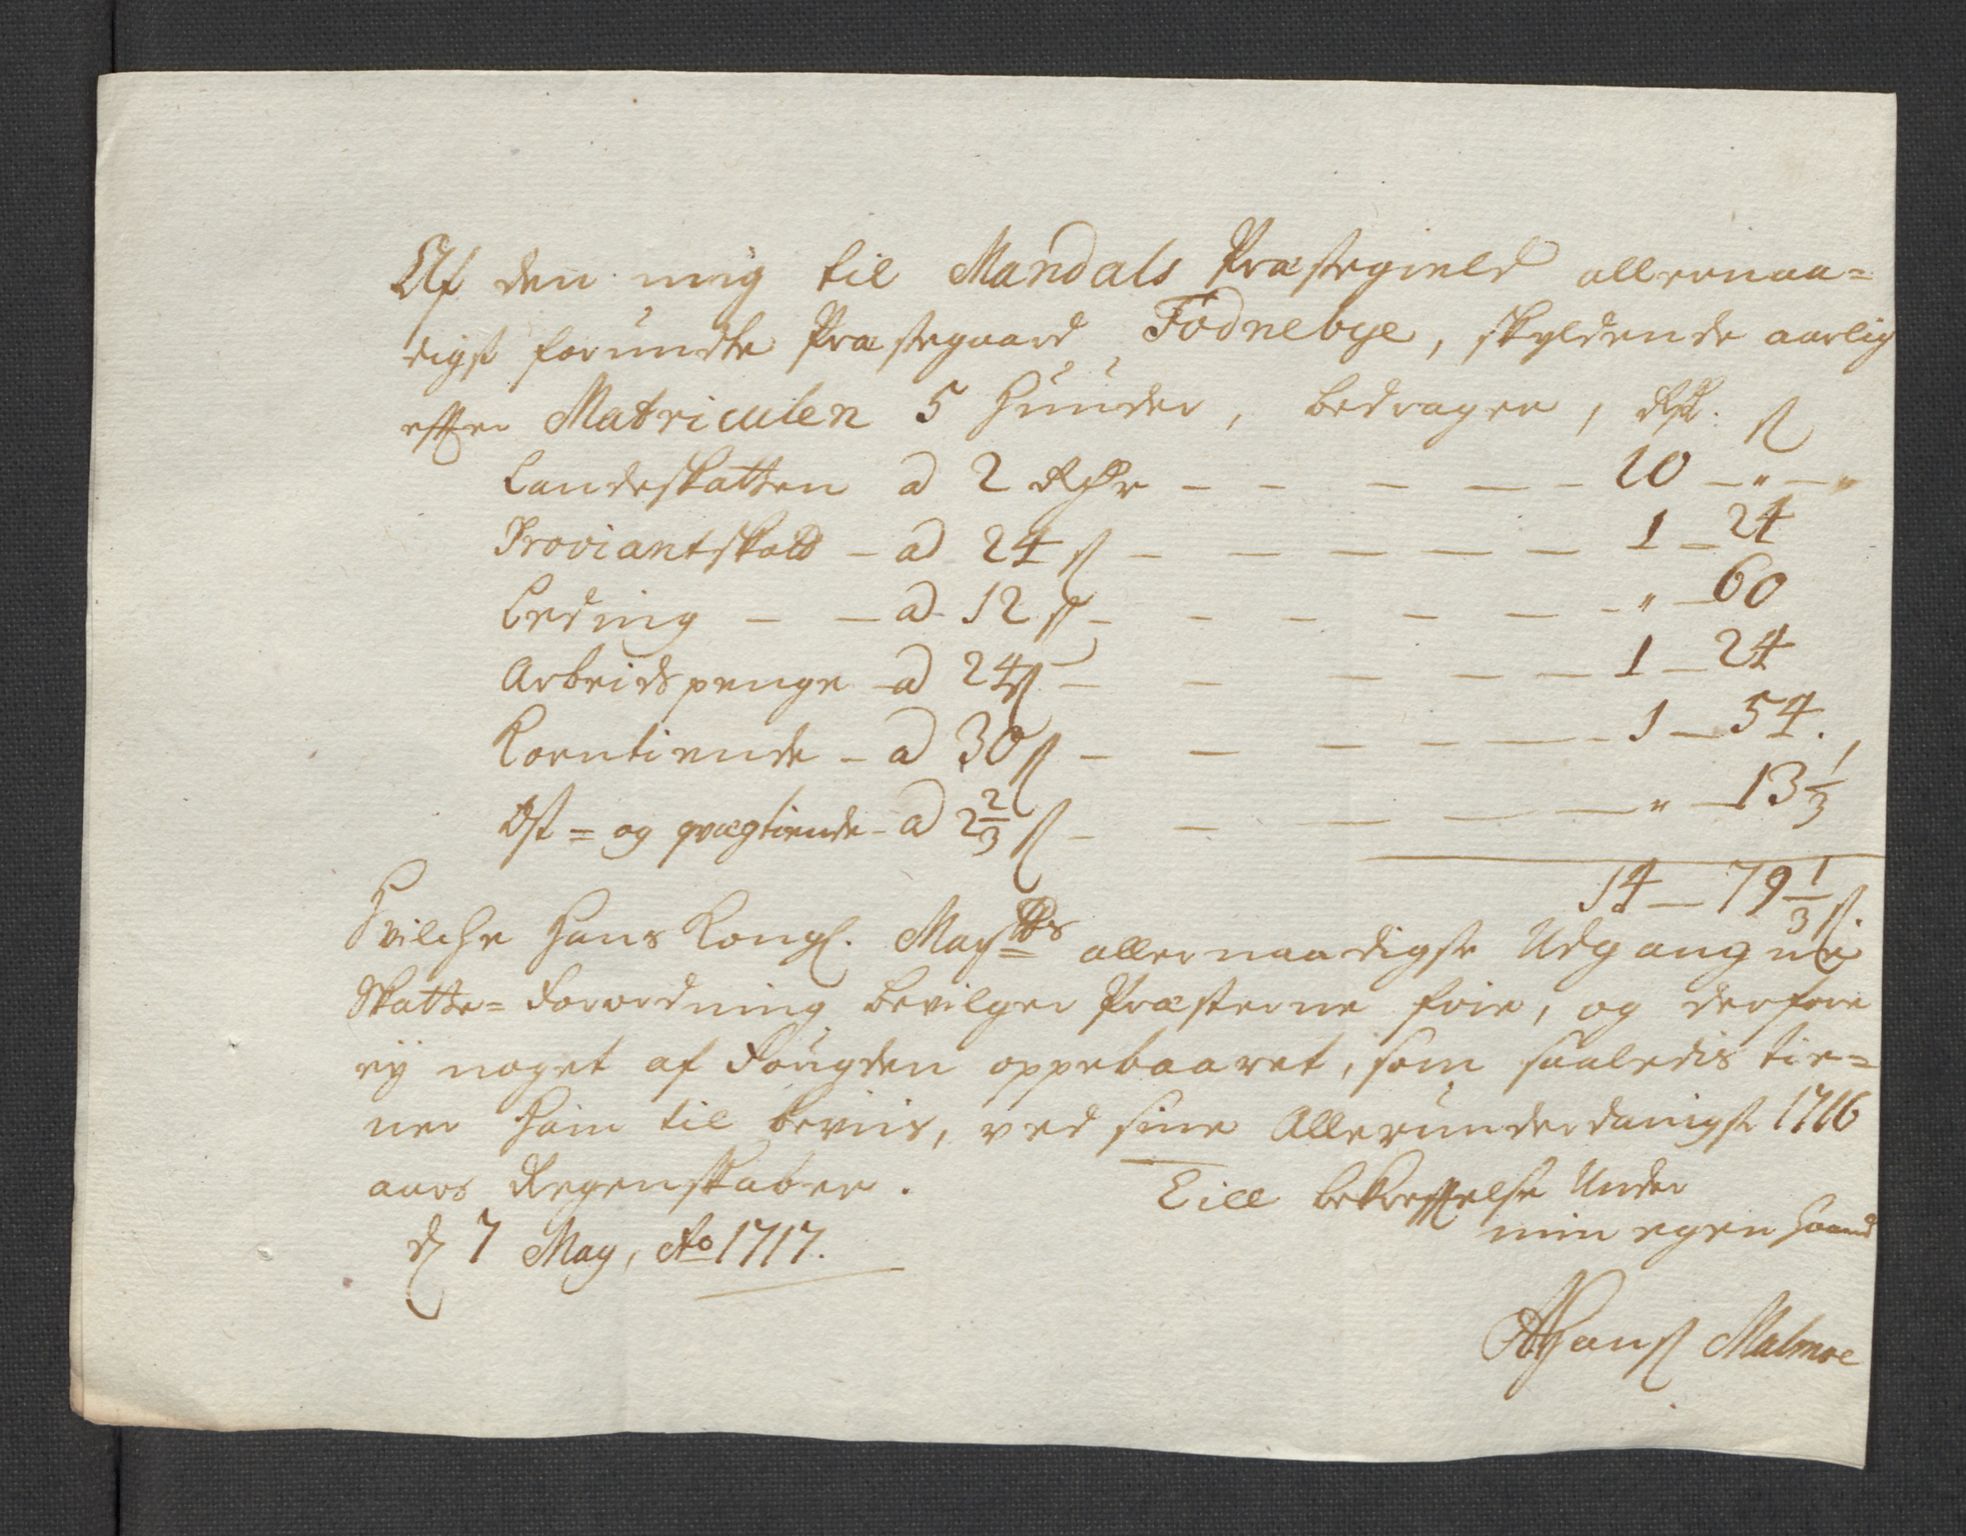 Af den mig til Mandals Præstegield allernaa=
digst forundte Præstegaard Fodnebye, skyldende aarlig
efter Matriculen 5 Hunder, bedrager, Rdr. ß
Landeskatten a 2 Rdr — — — — — 10 — " — "
Proviantskatt — a 24 ß — — — — — 1 — 24
Leding — — a 12 ß — — — — — " — 60
Arbeidspenge a 24 ß — — — — — 1 — 24
Korntiende — a 30 ß — — — — — 1 — 54.
Ost = og qvægtiende — a 2 2/3 ß — — — — — " — 13 1/3
14 — 79 1/3 ß.
Hvilche Hans Kongl. Maytts allernaadigste Udgangne
Skatte= Forordning bevilger Præsterne frie, og derfore
ey noget af Fougden oppebaaret, som saaledis tie=
ner ham til beviis, ved sine Allerunderdanigst 1716
aars Regenskaber. Till bekreftelse Under
min egen Haand
d 7 May, Ao 1717.
Hans Malmoe